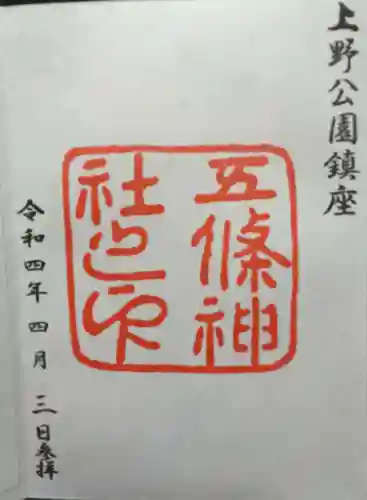 上野公園鎮座
五條神
社之印
令和四年四月三日参拝